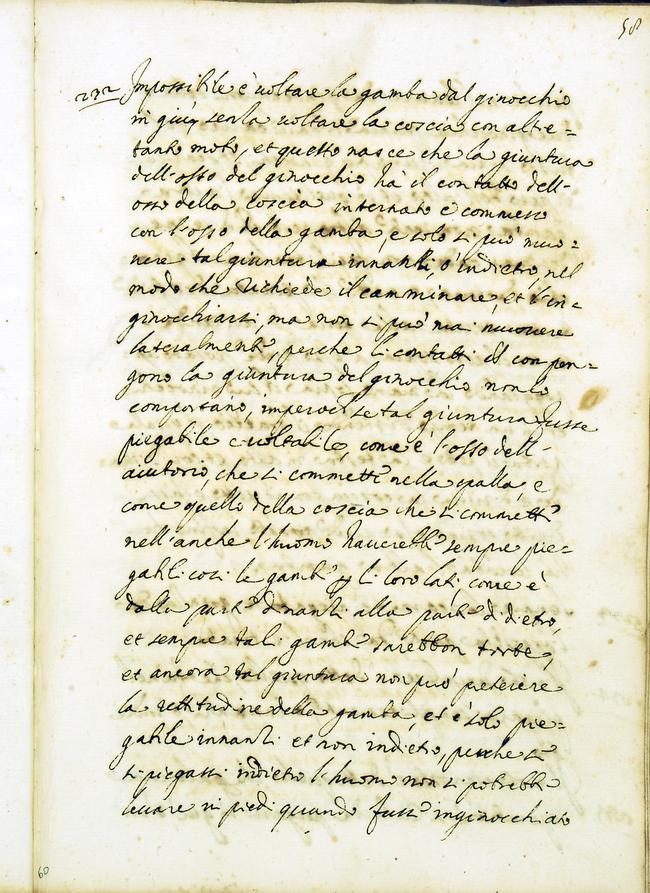 58
232 Impossibile è voltare la gamba dal ginocchio
in giù, senza voltare la coscia con altre=
tanto moto, et questo nasce che la giuntura
dell'osso del ginocchio hà il contatto dell'
osso della coscia internato e commesso
con l'osso della gamba, e solo si può muo=
vere tal giuntura innanzi, ò indietro, nel
modo che richiede il camminare, et l'in=
ginocchiarsi, ma non si può mai muovere
lateralmente, perche li contatti che compon=
gono la giuntura del ginocchio non lo
comportano, imperoche se tal giuntura fusse
piegabile e voltabile, come è l'osso dell'
aiutorio, che si commette nella spalla, e
come quello della coscia che si commette
nell'anche l'huomo haverebbe sempre pie=
gabili così le gambe p li loro lati, come è
dalla parte dinanzi alla parte di dietro,
et sempre tali gambe sarebbon torte,
et ancora tal giuntura non può preterire
la rettitudine della gamba, et è solo pie=
gabile innanzi et non indietro, perche se
si piegassi indietro l'huomo non si potrebbe
levare in piedi quando fusse inginocchiato
60